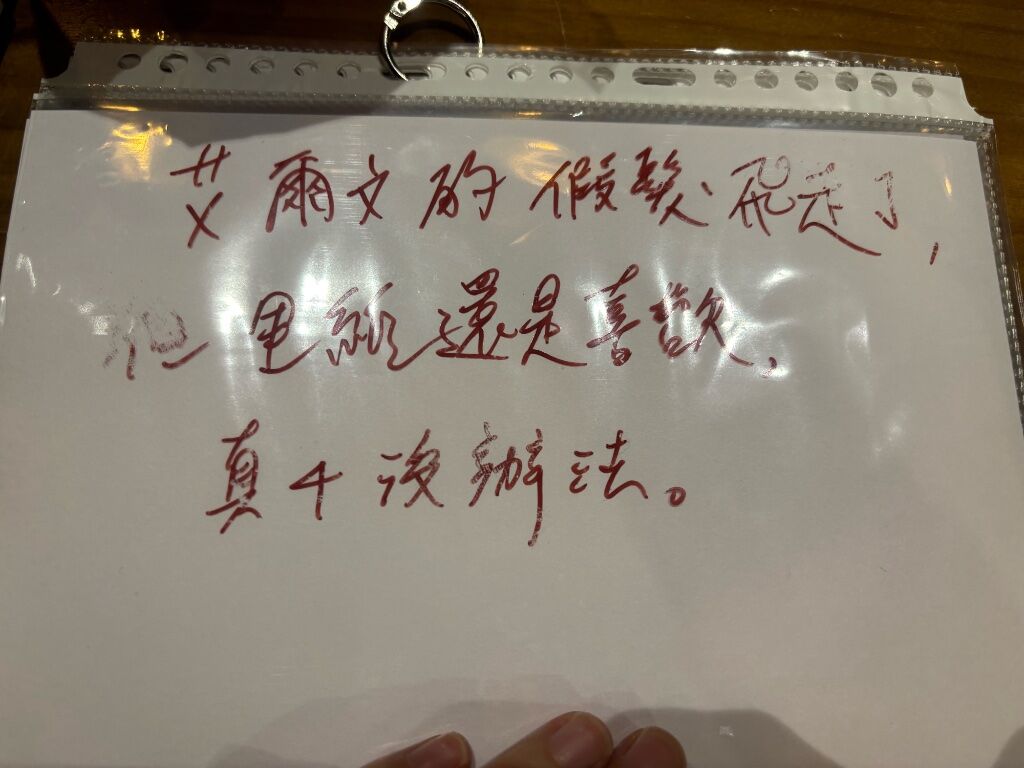 艾爾文的假髮飛走了,
里維還是喜歡,
真4沒辦法。